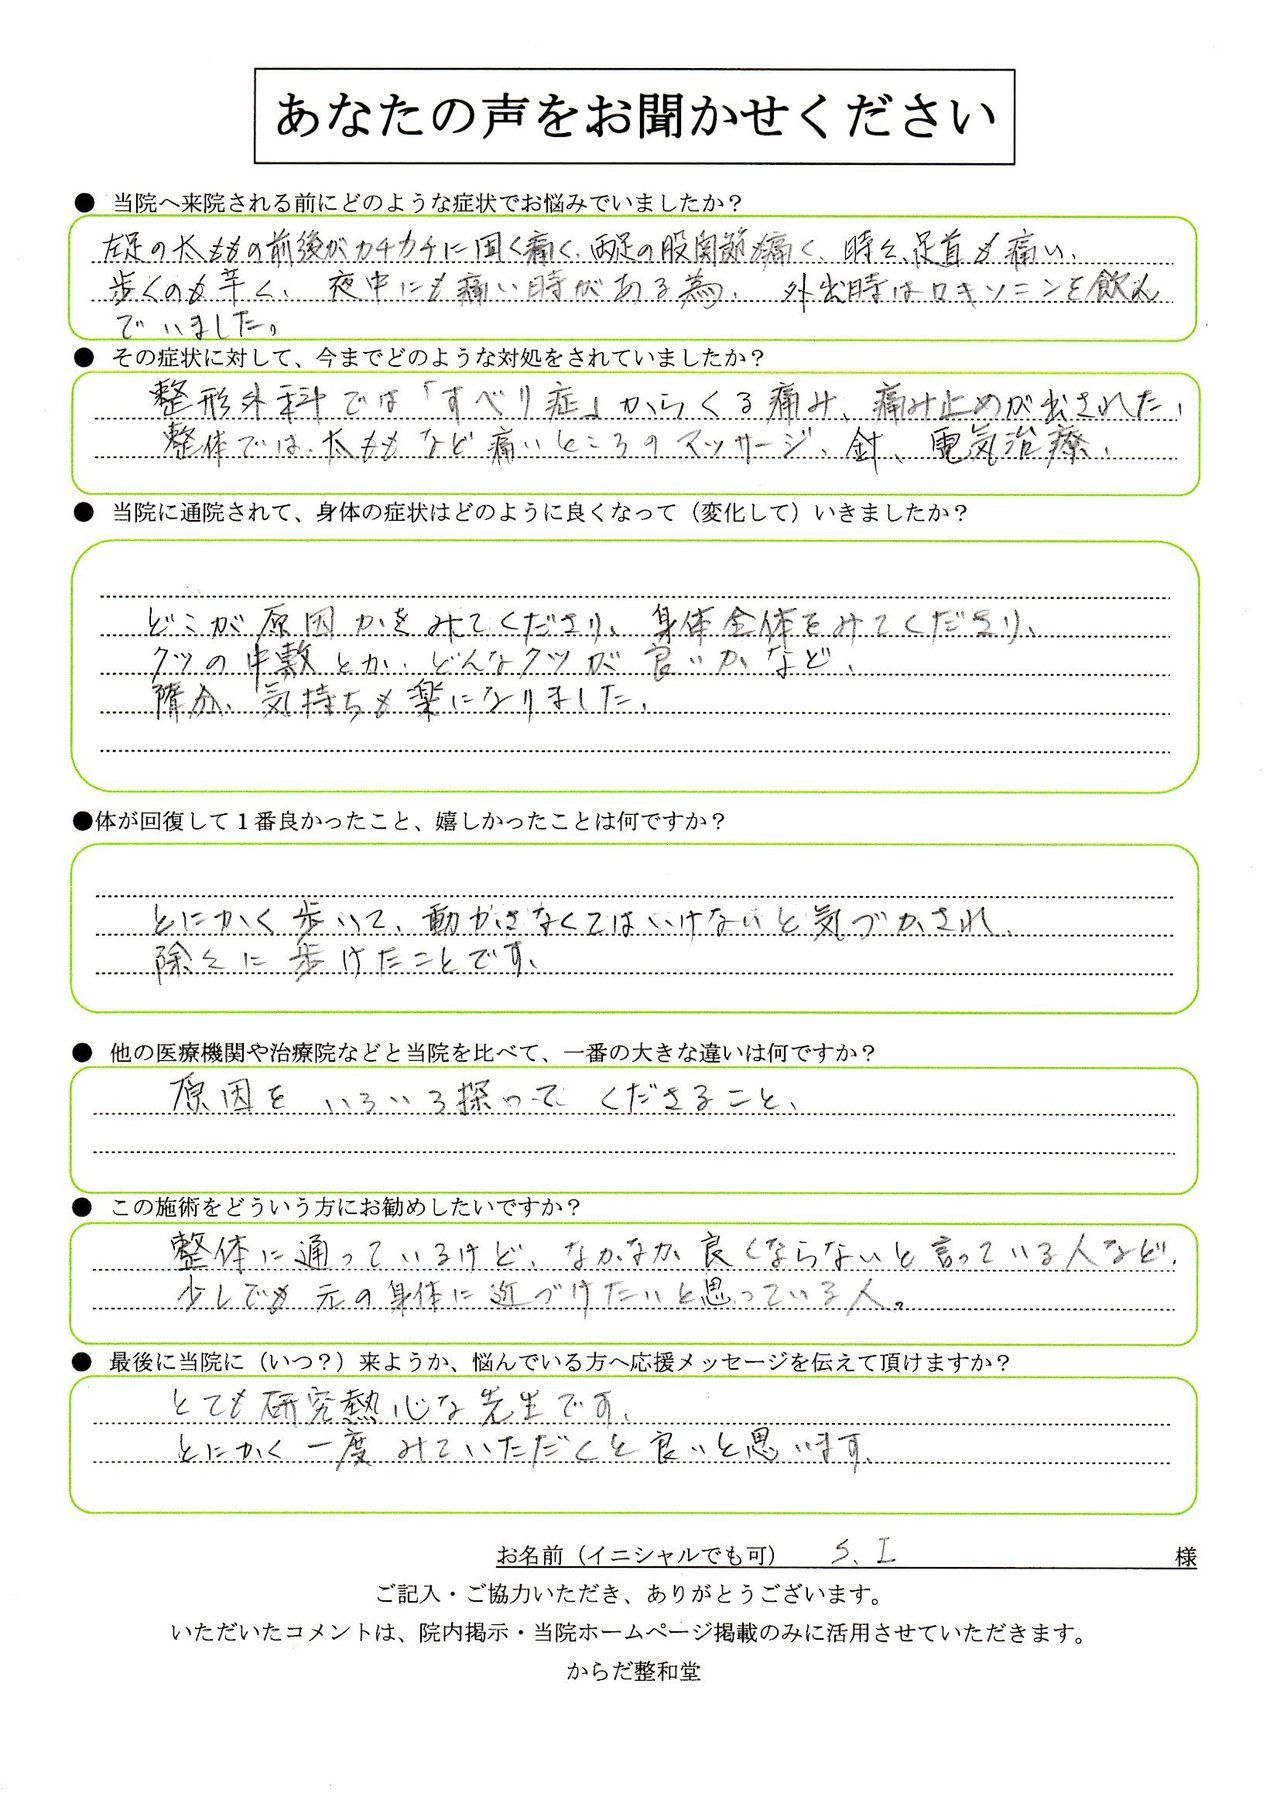 あなたの声をお聞かせください
● 当院へ来院される前にどのような症状でお悩みでいましたか？
左足の太ももの前後がカチカチに固く痛く、両足の股関節も痛く、時々、足首も痛い、
歩くのも辛く、夜中にも痛い時がある為、外出時はロキソニンを飲ん
でいました。
● その症状に対して、今までどのような対処をされていましたか？
整形外科では「すべり症」からくる痛み、痛み止めが出された、
整体では、太ももなど痛いところのマッサージ、針、電気治療、
● 当院に通院されて、身体の症状はどのように良くなって（変化して）いきましたか？
どこが原因かをみてくださり、身体全体をみてくださり、
クツの中敷とか、どんなクツが良いかなど、
随分、気持ちも楽になりました、
●体が回復して１番良かったこと、嬉しかったことは何ですか？
とにかく歩いて、動かさなくてはいけないと気づかされ、
除々に歩けたことです、
● 他の医療機関や治療院などと当院を比べて、一番の大きな違いは何ですか？
原因をいろいろ探ってくださること、
● この施術をどういう方にお勧めしたいですか？
整体に通っているけど、なかなか良くならないと言っている人など、
少しでも元の身体に近づけたいと思っている人。
● 最後に当院に（いつ？）来ようか、悩んでいる方へ応援メッセージを伝えて頂けますか？
とても研究熱心な先生です、
とにかく一度みていただくと良いと思います、
お名前（イニシャルでも可） S.I 様
ご記入・ご協力いただき、ありがとうございます。
いただいたコメントは、院内掲示・当院ホームページ掲載のみに活用させていただきます。
からだ整和堂